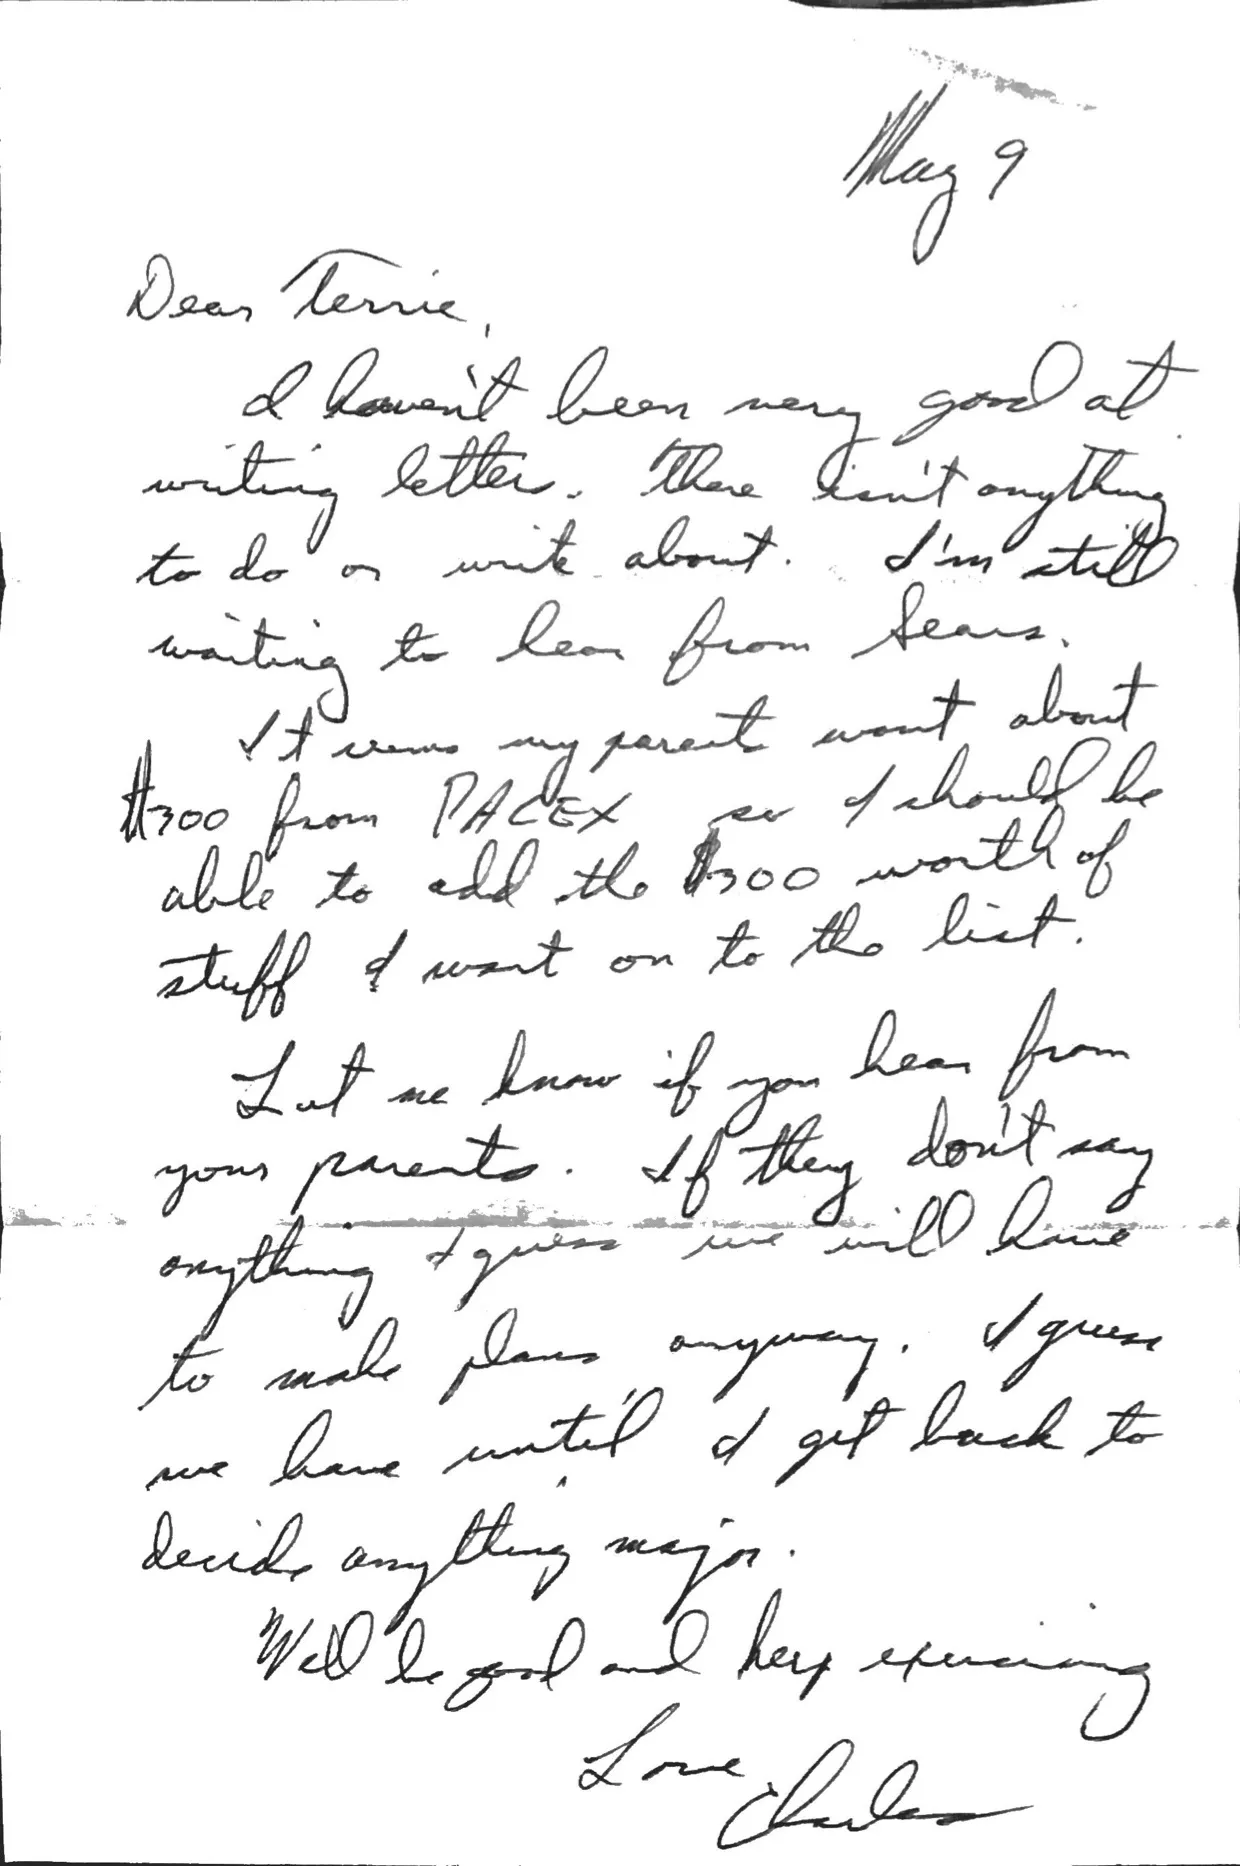 May 9
Dear Terrie,
I haven't been very good at
writing letters. There isn't anything
to do or write about. I'm still
waiting to hear from Sears.
It seems my parents want about
$300 from PACEX so I should be
able to add the $300 worth of
stuff I want on to the list.
Let me know if you hear from
your parents. If they don't say
anything I guess we will have
to make plans anyway. I guess
we have until I get back to
decide anything major.
Well be good and keep exercising
Love,
Charles